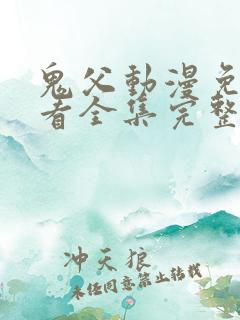 鬼父動漫免
看全集完整
冲天狼
未经同意禁止转载